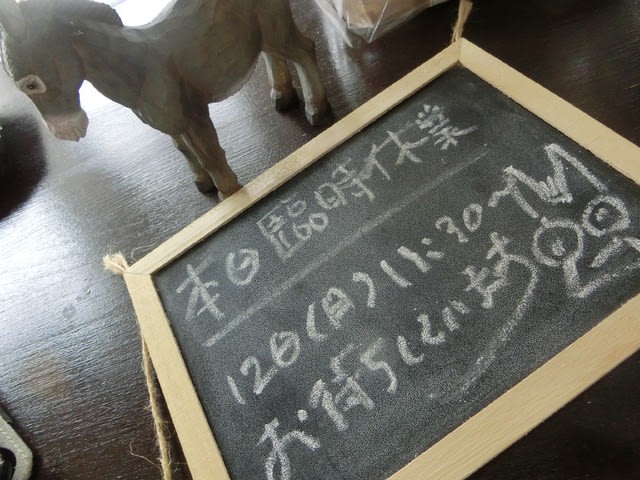 本日臨時休業
12日(日)11:30〜
お待ちしています